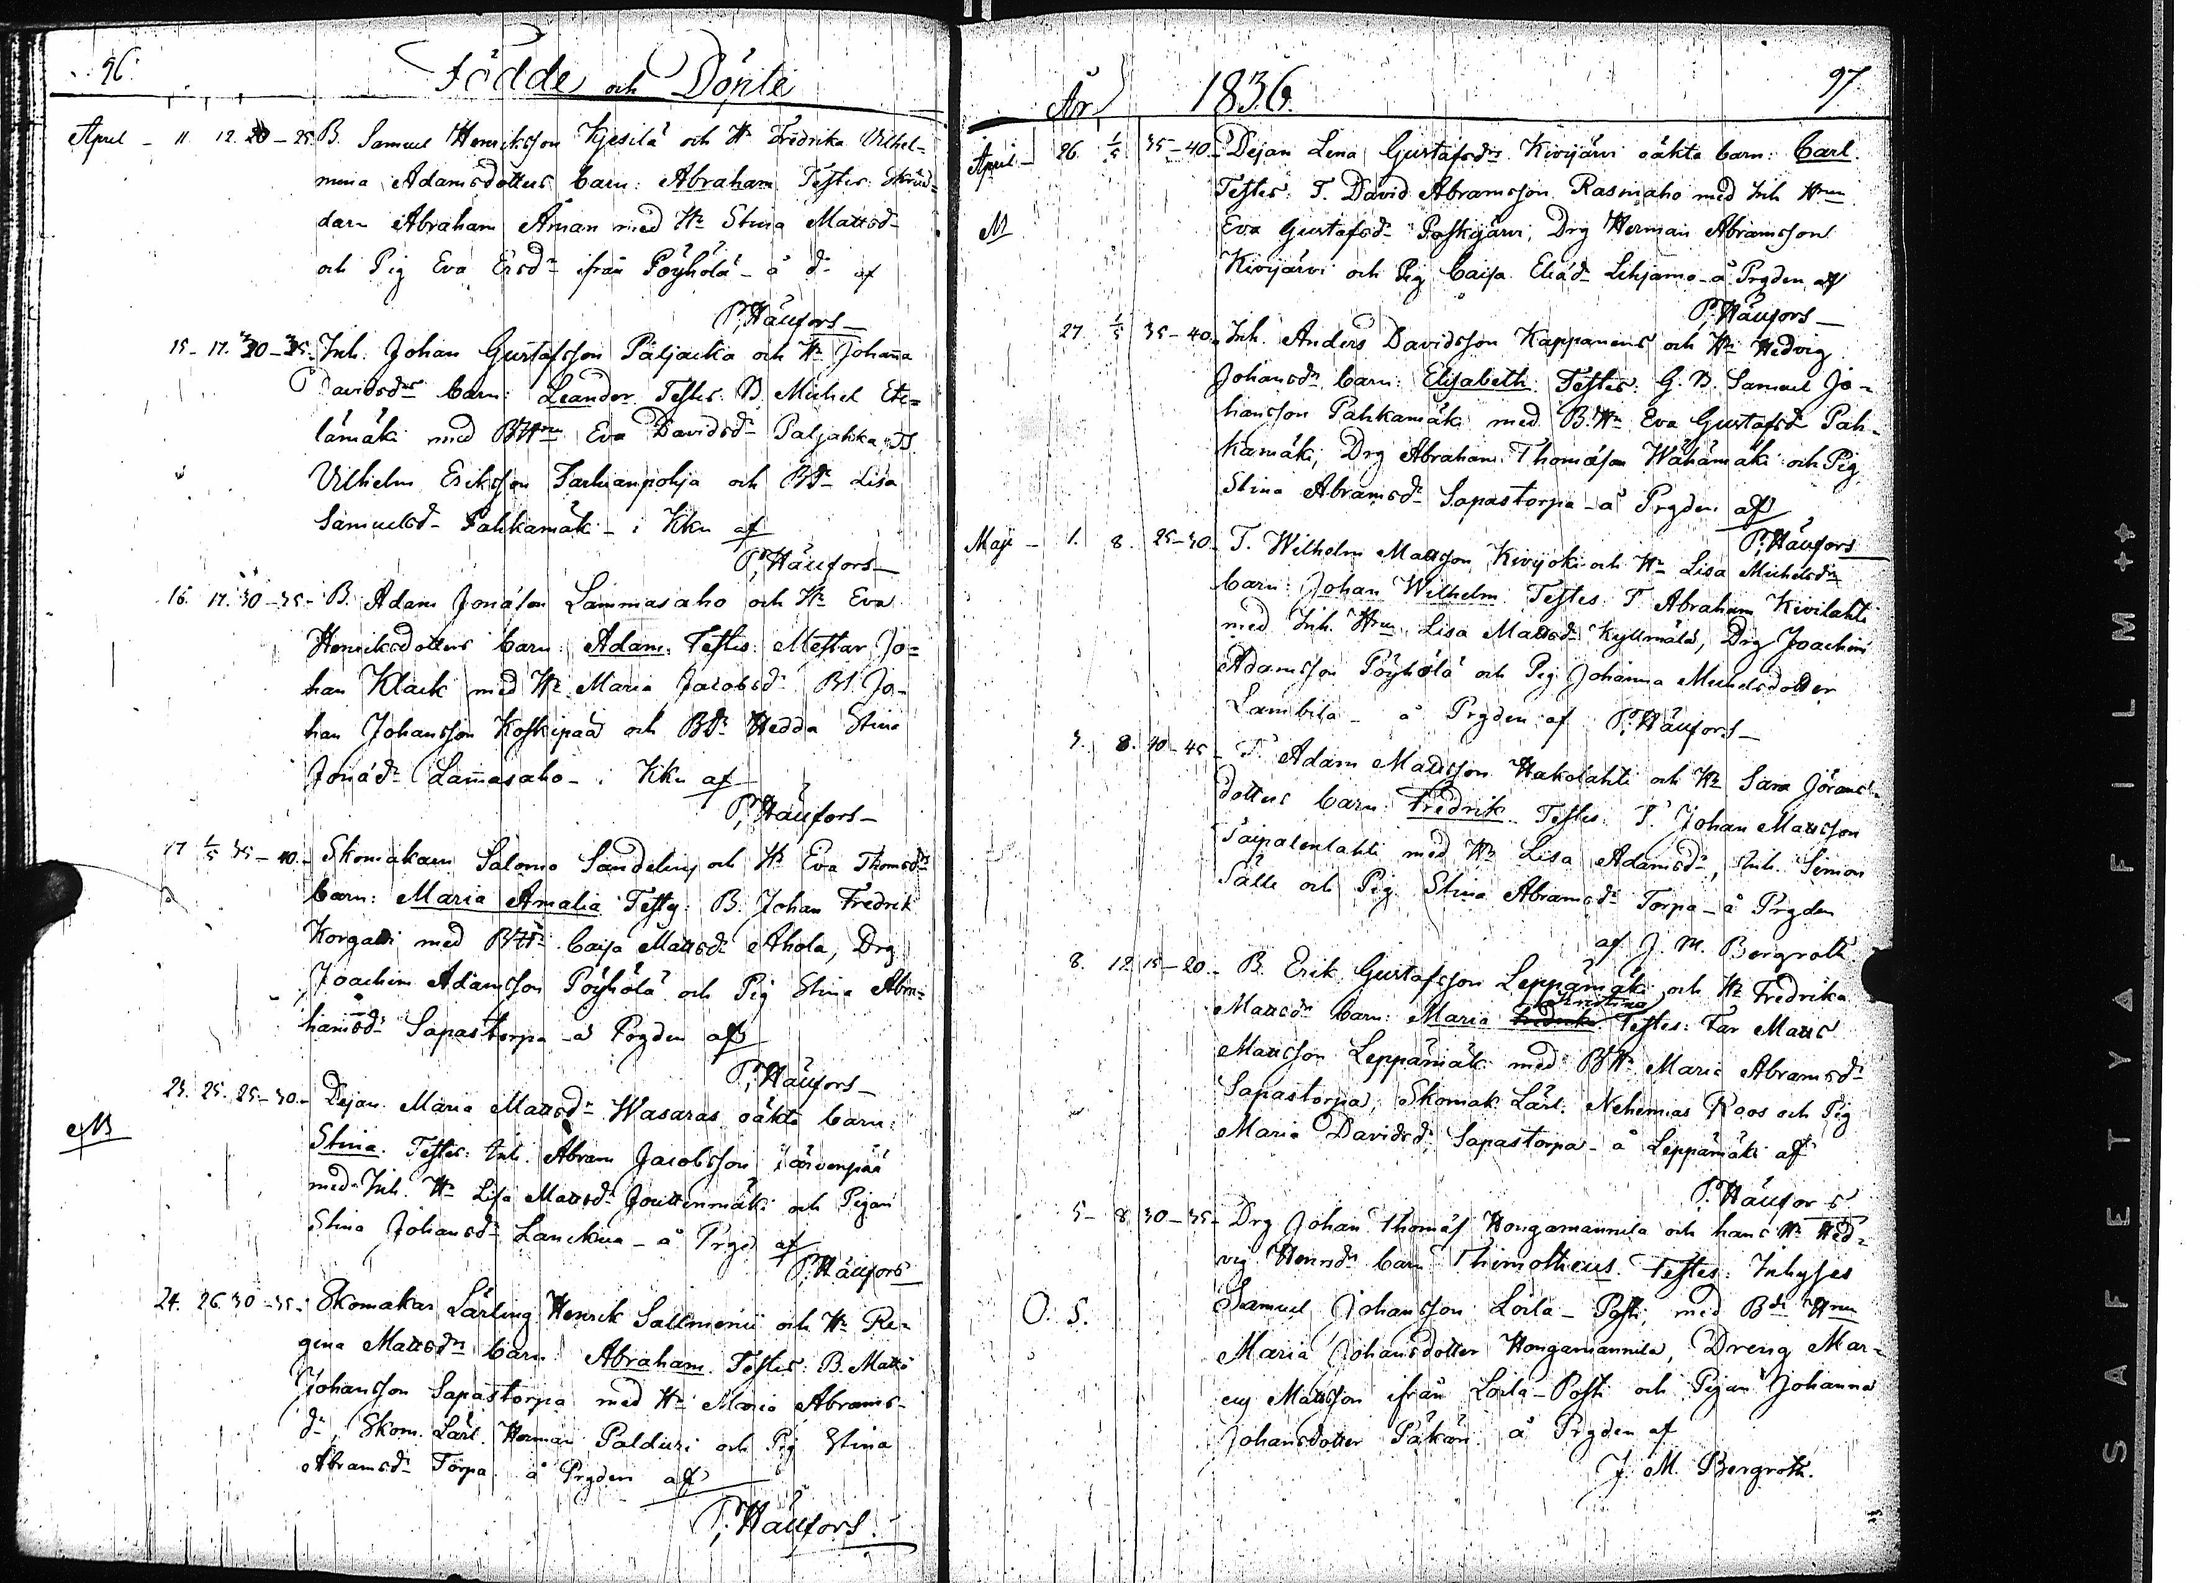 96.
Födde och Döpte
April - 11 12. 20 - 25. B. Samuel Henriksson Kjesilä och H. Fredrika Vilhel=
mina Adamsdotters barn: Abraham Testes: Skräd=
darn Abraham Åman med H. Stina Mattsd.
och Pig Eva Ersd. ifrån Pöyhölä - å d. af
P. Häufors -
15 - 17. 30 - 35. Inh. Johan Gustafsson Paljacka och H. Johanna
Davidsdrs barn: Leander Testes: B. Michel Ete=
lämäki med BHru Eva Davidsd. Paljakka, 
Vilhelm Eriksson Tarhianpohja och BD. Lisa
Samuelsd. Pahkamäki - i Kku af
P. Häufors -
16. 17. 30 - 35 - B. Adam Jonasson Lammasaho och H. Eva
Henriksdotters barn: Adam. Testes: Mestar Jo=
han Klack med H. Maria Jacobsd. Bs. Jo-
han Johansson Koskipää och BD. Hedda Stina
Jonæd. Lam̄asaho - i Kku af
P. Häufors -
17 1/5 35 - 40 - Skomakarn Salomo Sandelin och H. Eva Thomsdrs
barn: Maria Amalia Testes: B. Johan Fredrik
Korgatti med BH. Caisa Mattsd. Ahola, Drg
Joachim Adamsson Pöyhölä och Pig Stina Abra=
hamsd. Sapastorpa å Prgden af
P. Häufors -
23. 25. 25 - 30. - Pejan Maria Mattsd. Wasaras oäkta barn:
Stina. Testes: Inh. Abram Jacobsson Järvenpää
med Inh. H. Lisa Mattsd. Jouttenmäki och Pigan
Stina Johansd. - å Prgd af
P. Häufors
24. 26. 30 - 35. Skomakar Lärling Henrik Sallmenii och H. Re=
gina Mattsdrs barn: Abraham. Testes: B. Matts
Johansson Sapastorpa med H. Maria Abrams-
d., Skom. Lärl. Herman Palduri och Pig Stina
Abramsd. Torpa å Prgden af
P. Häufors.
År 1836. 97.
April - 26. 1/5 35 - 40 - Pejan Lena Gustafsdrs Kivijärvi oäkta barn: Carl.
Testes: T. David Abramsson Rasinaho med Inh Hru
Eva Gustafsd. Poskijärvi, Drg Herman Abramsson
Kivijärvi och Pig Caisa Eliæd. Lehjamo - å Prgden af
P. Häufors -
27. 1/5 35 - 40. Inh. Anders Davidsson Kappanens och H. Hedvig
Johansdrs barn: Elisabeth. Testes: G. B. Samuel Jo-
hansson Pahkamäki med B.H. Eva Gustafsd. Pah-
kamäki, Drg Abraham Thomasson Wähämäki och Pig
Stina Abramsd. Sapastorpa - å Prgden af
P. Häufors
Maji - 1. 8. 25 - 30 - T. Wilhelm Mattsson Kivijoki och H. Lisa Michelsdrs
barn: Johan Wilhelm. Testes: T. Abraham Kivilahti
med Inh. Hru Lisa Mattsd. Kyllmälä, Drg Joachim
Adamsson Pöyhölä och Pig Johanna Michelsdotter
Lambila - å Prgden af P. Häufors -
3. 8. 40 - 45 - T. Adam Mattsson Hakolahti och H. Sara Jörans-
dotters barn: Fredrik. Testes: T. Johan Mattsson
Taipalenlahti med H. Lisa Adamsd., Inh. Simon
Sälli och Pig Stina Abramsd. Torpa - å Prgden
af J. M. Bergroth
8. 12 15 - 20. - B. Erik Gustafsson Leppämäki och H. Fredrika
Kristina
Mattsdrs barn: Maria Fredrika Testes: Far Matts
Mattsson Leppämäki med BH. Maria Abramsd.
Sapastorpa, Skomak. Lärl. Nehemias Roos och Pig
Maria Davidsd. Sapastorpa - å Leppämäki af
P. Häufors
5 - 8 30 - 35 - Drg Johan Thomæs Hongamannila och hans H. Hed=
vig Henrsdrs barn Thimotheus. Testes: Inhyses
O. S. Samuel Johansson Loila - Posti, med Bde Hru
Maria Johansdotter Hongamannila, Dreng Mar=
cus Mattsson ifrån Loila-Posti och Pejan Johanna
Johansdotter Päkäri å Prgden af
J. M. Bergroth.
SAFETY A FILM ++